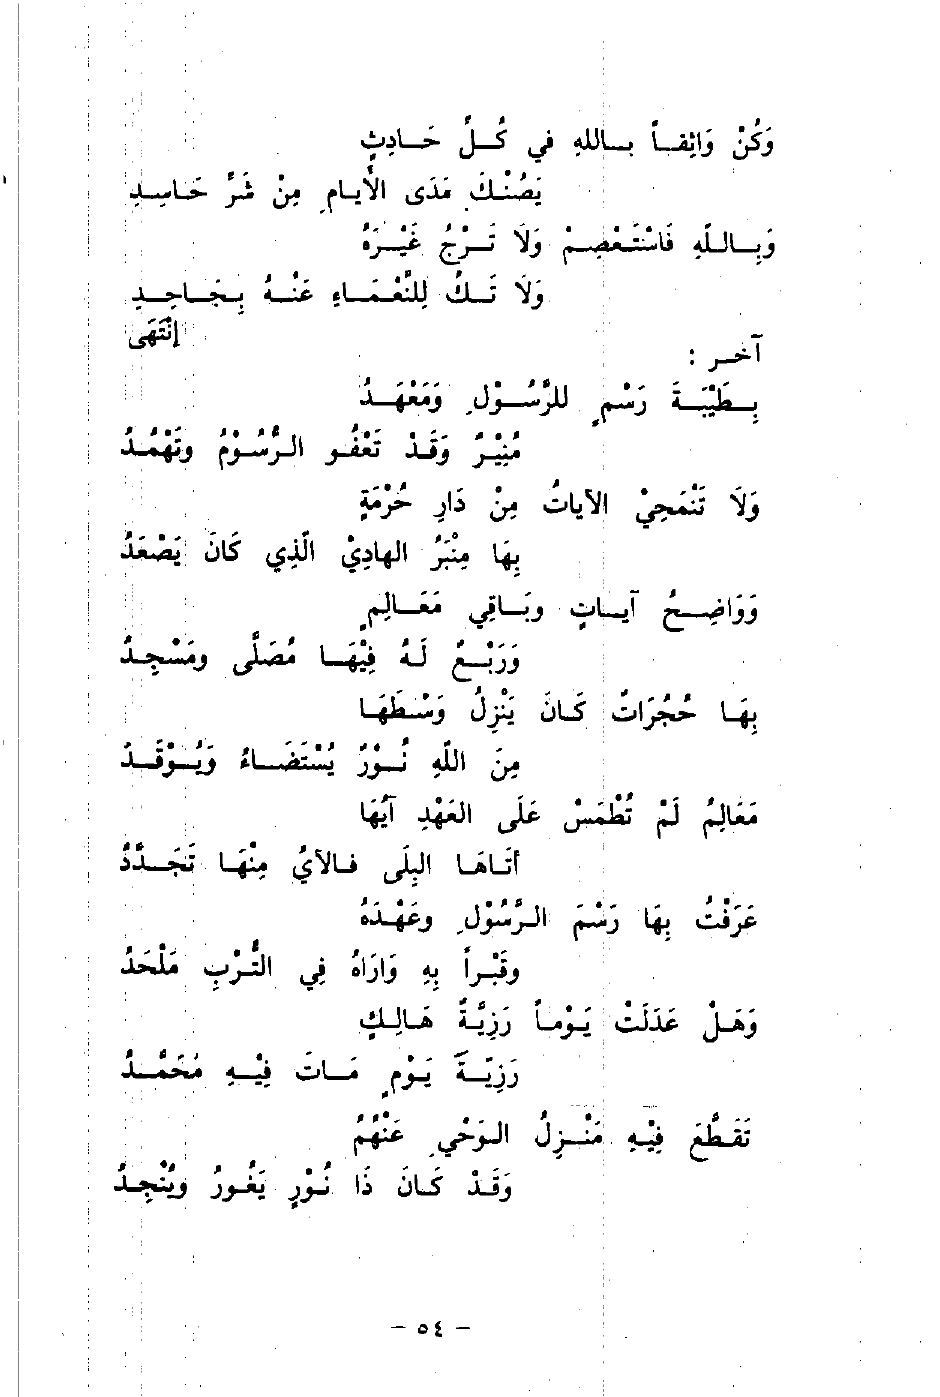 وَكُنْ وَاثِقاً بِاللهِ في كُلِّ حَادِثٍ
يَصُنْكَ مَدَى الأَيامِ مِنْ شَرِّ حَاسِدِ
وَبِاللَّهِ فَاسْتَعْصِمْ وَلاَ تَرْجُ غَيْرَهُ
وَلاَ تَكُ لِلنَّعْمَاءِ عَنْهُ بِجَاحِدِ
إنْتَهَى
آخر :
بِطَيْبَةَ رَسْمٍ للرَّسُوْلِ وَمَعْهَدُ
مُنِيْرٌ وَقَدْ تَعْفُو الرُّسُوْمُ وتَهْمُدُ
وَلاَ تَنْمَحِيْ الآياتُ مِنْ دَارِ حُرْمَةٍ
بِهَا مِنْبَرُ الهادِيْ الَّذِي كَانَ يَصْعَدُ
وَوَاضِحُ آيَاتٍ وبَاقِي مَعَالِمٍ
وَرَبْعٌ لَهُ فِيْهَا مُصَلَّى ومَسْجِدُ
بِهَا حُجُرَاتٌ كَانَ يَنْزِلُ وَسْطَهَا
مِنَ اللَّهِ نُوْرٌ يُسْتَضَاءُ وَيُوْقَدُ
مَعَالِمُ لَمْ تُطْمَسْ عَلَى العَهْدِ آيُهَا
أتَاهَا البِلَى فالآيُ مِنْهَا تَجَدَّدُ
عَرَفْتُ بِهَا رَسْمَ الرَّسُوْلِ وعَهْدَهُ
وقَبْراً بِهِ وَارَاهُ فِي التُّرْبِ مَلْحَدُ
وَهَلْ عَدَلَتْ يَوْماً رَزِيَّةُ هَالِكٍ
رَزِيّةَ يَوْمٍ مَاتَ فِيْهِ مُحَمَّدُ
تَقَطَّعَ فِيْهِ مَنْزِلُ الوَحْيِ عَنْهُمُ
وَقَدْ كَانَ ذَا نُوْرٍ يَغُورُ ويُنْجِدُ
- ٥٤ -